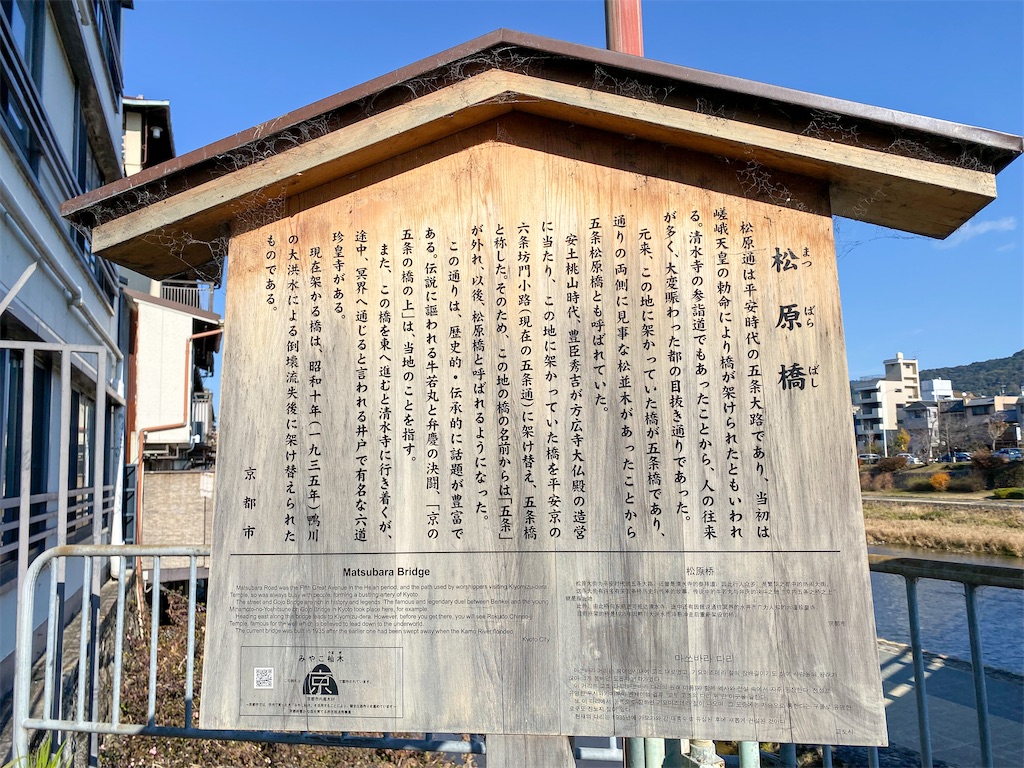 松原橋
まつ ばら ばし
松原通は平安時代の五条大路であり、当初は
嵯峨天皇の勅命により橋が架けられたともいわれ
る。清水寺の参詣道でもあったことから、人の往来
が多く、大変賑わった都の目抜き通りであった。
元来、この地に架かっていた橋が五条橋であり、
通りの両側に見事な松並木があったことから
五条松原橋とも呼ばれていた。
安土桃山時代、豊臣秀吉が方広寺大仏殿の造営
に当たり、この地に架かっていた橋を平安京の
六条坊門小路(現在の五条通)に架け替え、五条橋
と称した。そのため、この地の橋の名前からは「五条」
が外れ、以後、松原橋と呼ばれるようになった。
この通りは、歴史的・伝承的に話題が豊富で
ある。伝説に謳われる牛若丸と弁慶の決闘、「京の
五条の橋の上」は、当地のことを指す。
また、この橋を東へ進むと清水寺に行き着くが、
途中、冥界へ通じると言われる井戸で有名な六道
珍皇寺がある。
現在架かる橋は、昭和十年(一九三五年)鴨川
の大洪水による倒壊流失後に架け替えられた
ものである。
京都市
Matsubara Bridge
Matsubara Road was the Fifth Great Avenue in the Heian period, and the path used by worshippers visiting Kiyomizu-dera
Temple, so was always busy with people, forming a bustling artery of Kyoto.
The street and Gojo Bridge are rich in history and legends. The famous and legendary duel between Benkei and the young
Minamoto-no-Yoshitsune on Gojo Bridge in Kyoto took place here, for example.
Heading east along this bridge leads to Kiyomizu-dera. However, before you get there, you will see Rokudo Chinno-ji
Temple, famous for the well which is believed to lead down to the underworld.
The current bridge was built in 1935 after the earlier one had been swept away when the Kamo River flooded.
Kyoto City
松原桥
京都市
마쓰바라 다리
교토시
みやこ杣木
京